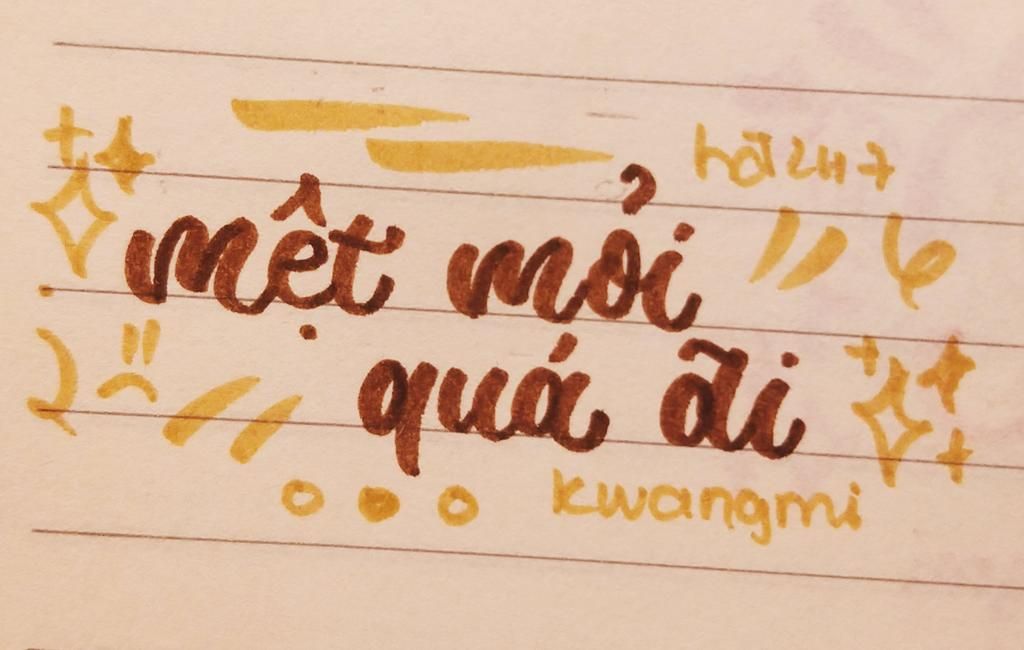 mệt mỏi
quá đi
kwangmi